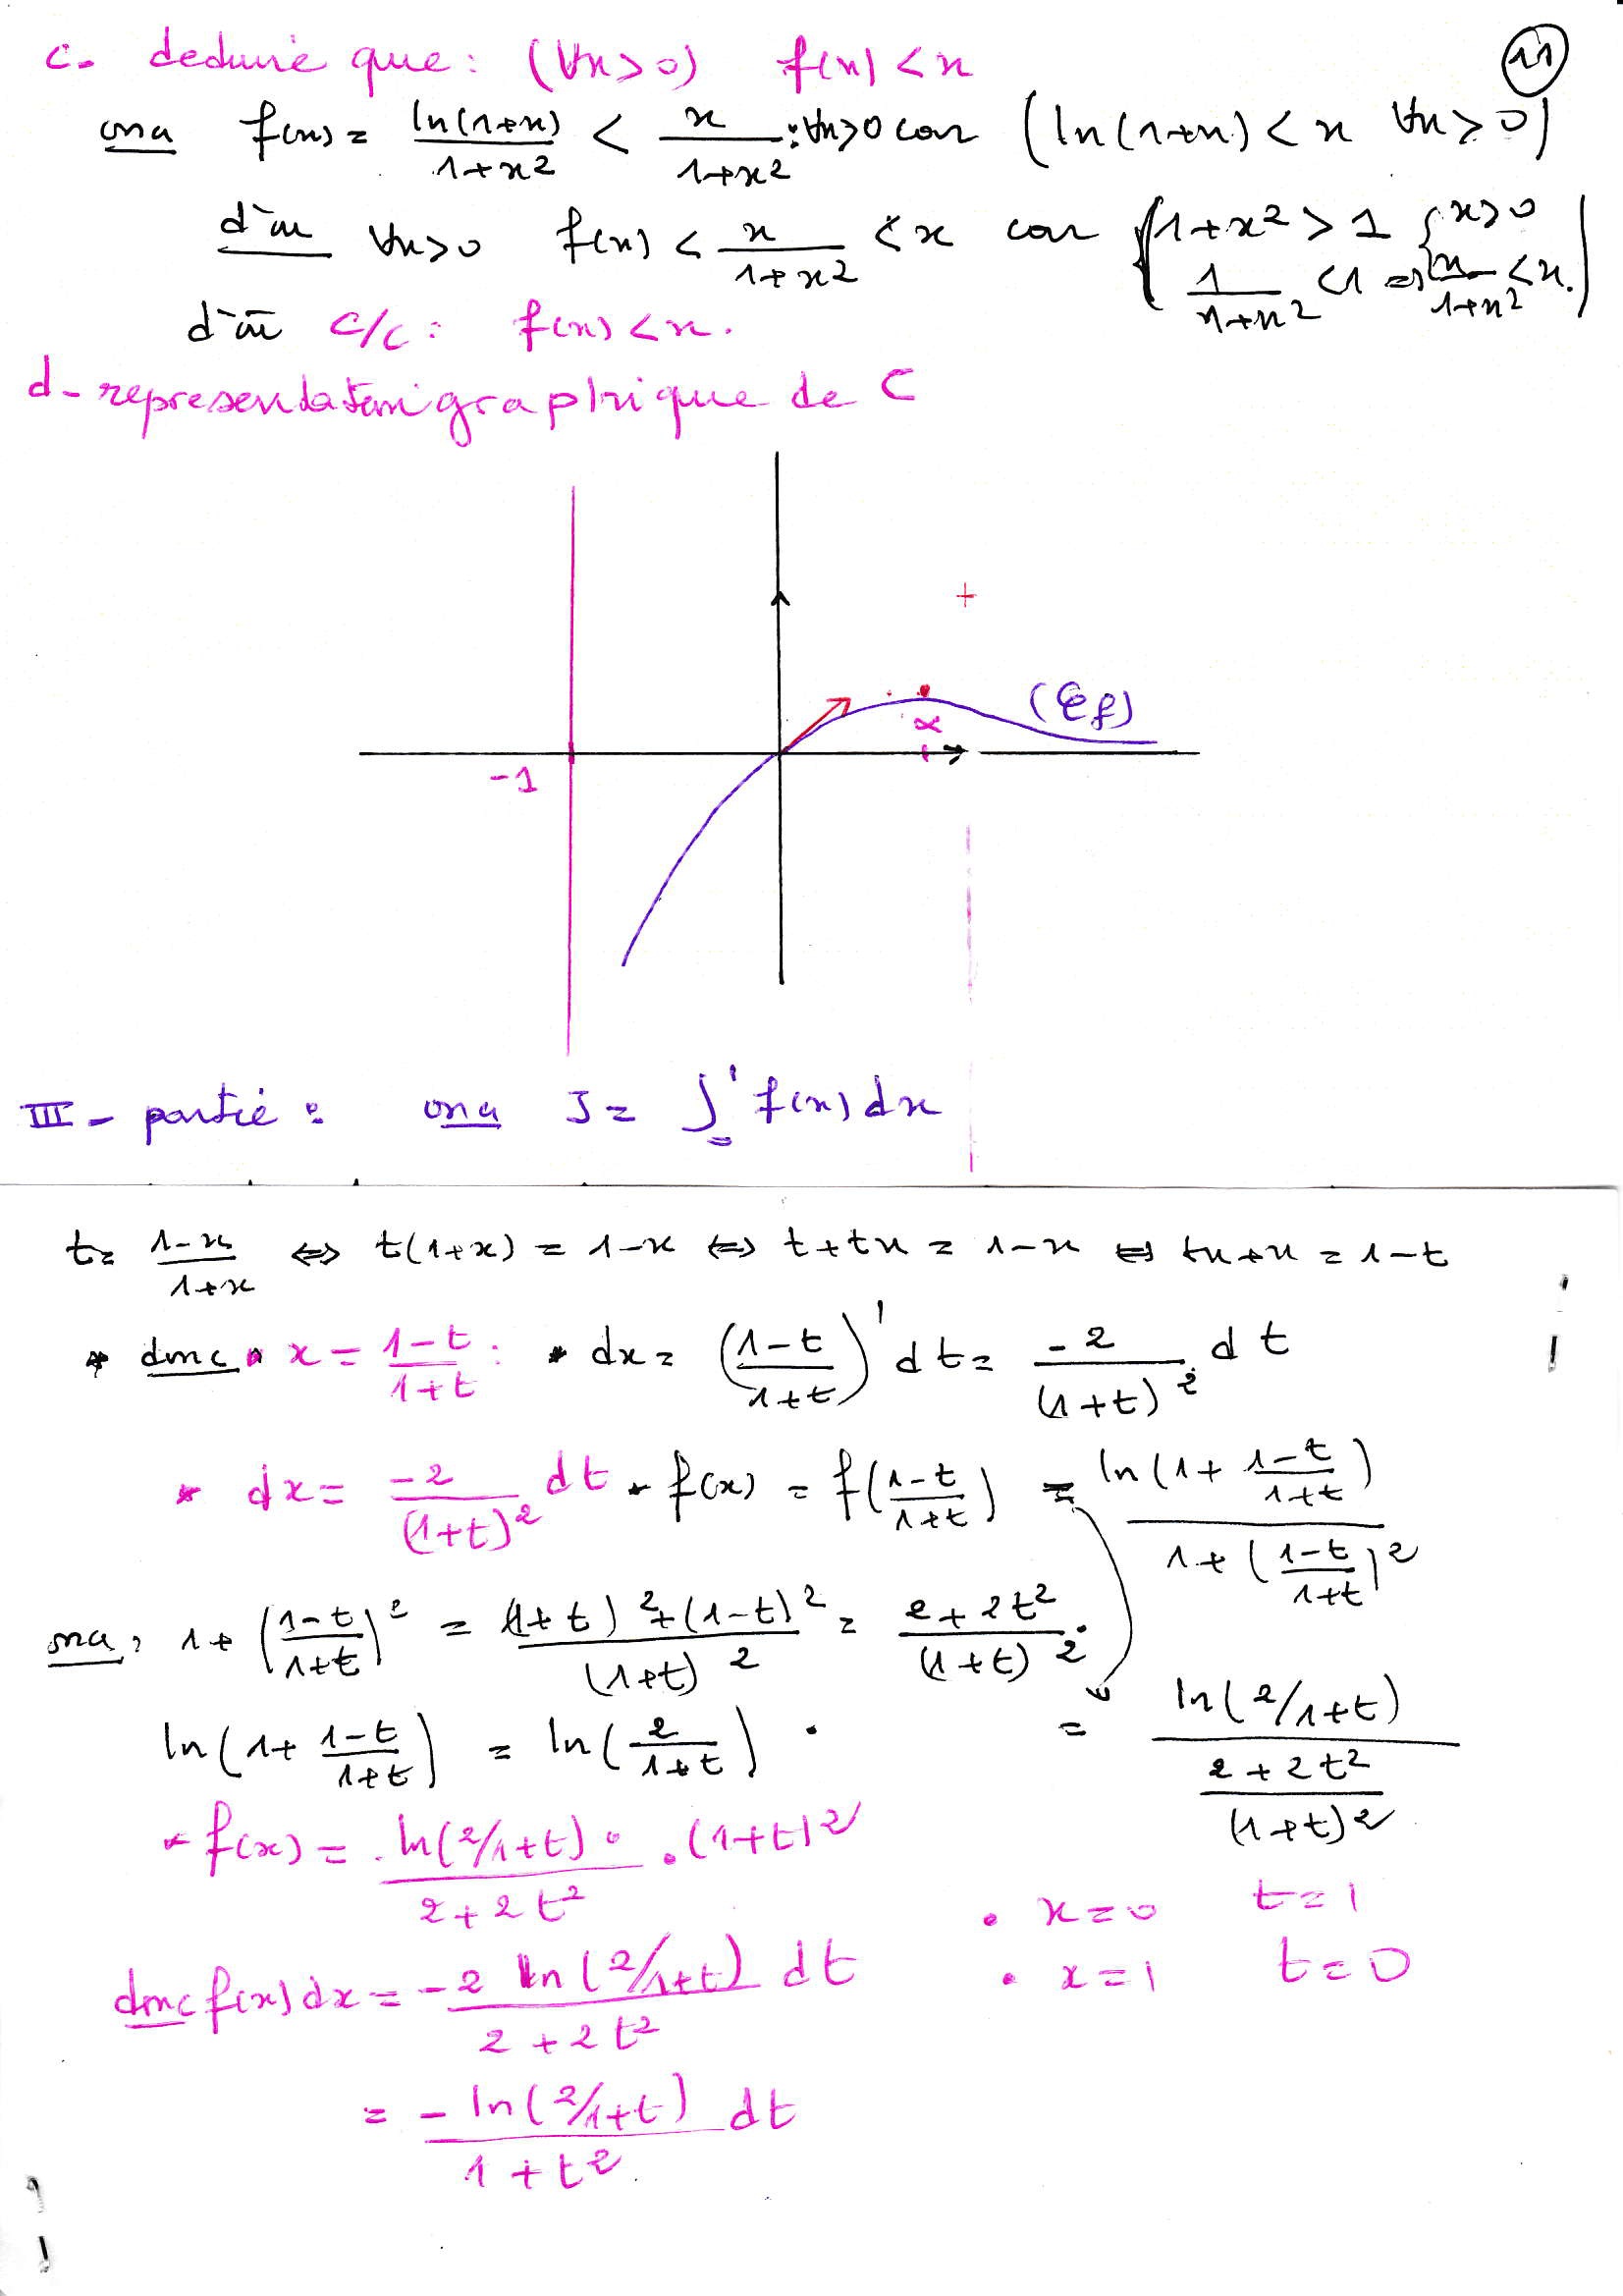 11
c. deduire que : (∀x>0) f(x) < x
ona f(x) = ln(1+x)/(1+x²) < x/(1+x²) : ∀x>0 car (ln(1+x) < x ∀x>0)
d'où ∀x>0 f(x) < x/(1+x²) < x car { 1+x² > 1 { x>0
1/(1+x²) < 1 ⇒ x/(1+x²) < x. )
d'où c/c : f(x) < x.
d- representation graphique de C
(𝒞f)
α
-1
III - partie : ona J = ∫₀¹ f(x) dx
t = (1-x)/(1+x) ⇔ t(1+x) = 1-x ⇔ t+tx = 1-x ⇔ tx+x = 1-t
* donc x = (1-t)/(1+t) : * dx = ((1-t)/(1+t))' dt = -2/(1+t)² . dt
* dx = -2/(1+t)² dt * f(x) = f((1-t)/(1+t)) = ln(1+(1-t)/(1+t)) / (1+((1-t)/(1+t))²)
ona, 1+((1-t)/(1+t))² = ((1+t)²+(1-t)²)/(1+t)² = (2+2t²)/(1+t)² .
ln(1+(1-t)/(1+t)) = ln(2/(1+t)) . = ln(2/1+t) / ((2+2t²)/(1+t)²)
* f(x) = ln(2/1+t)/(2+2t²) . (1+t)²
• x=0 t=1
donc f(x) dx = -2 ln(2/1+t)/(2+2t²) dt • x=1 t=0
= -ln(2/1+t)/(1+t²) dt